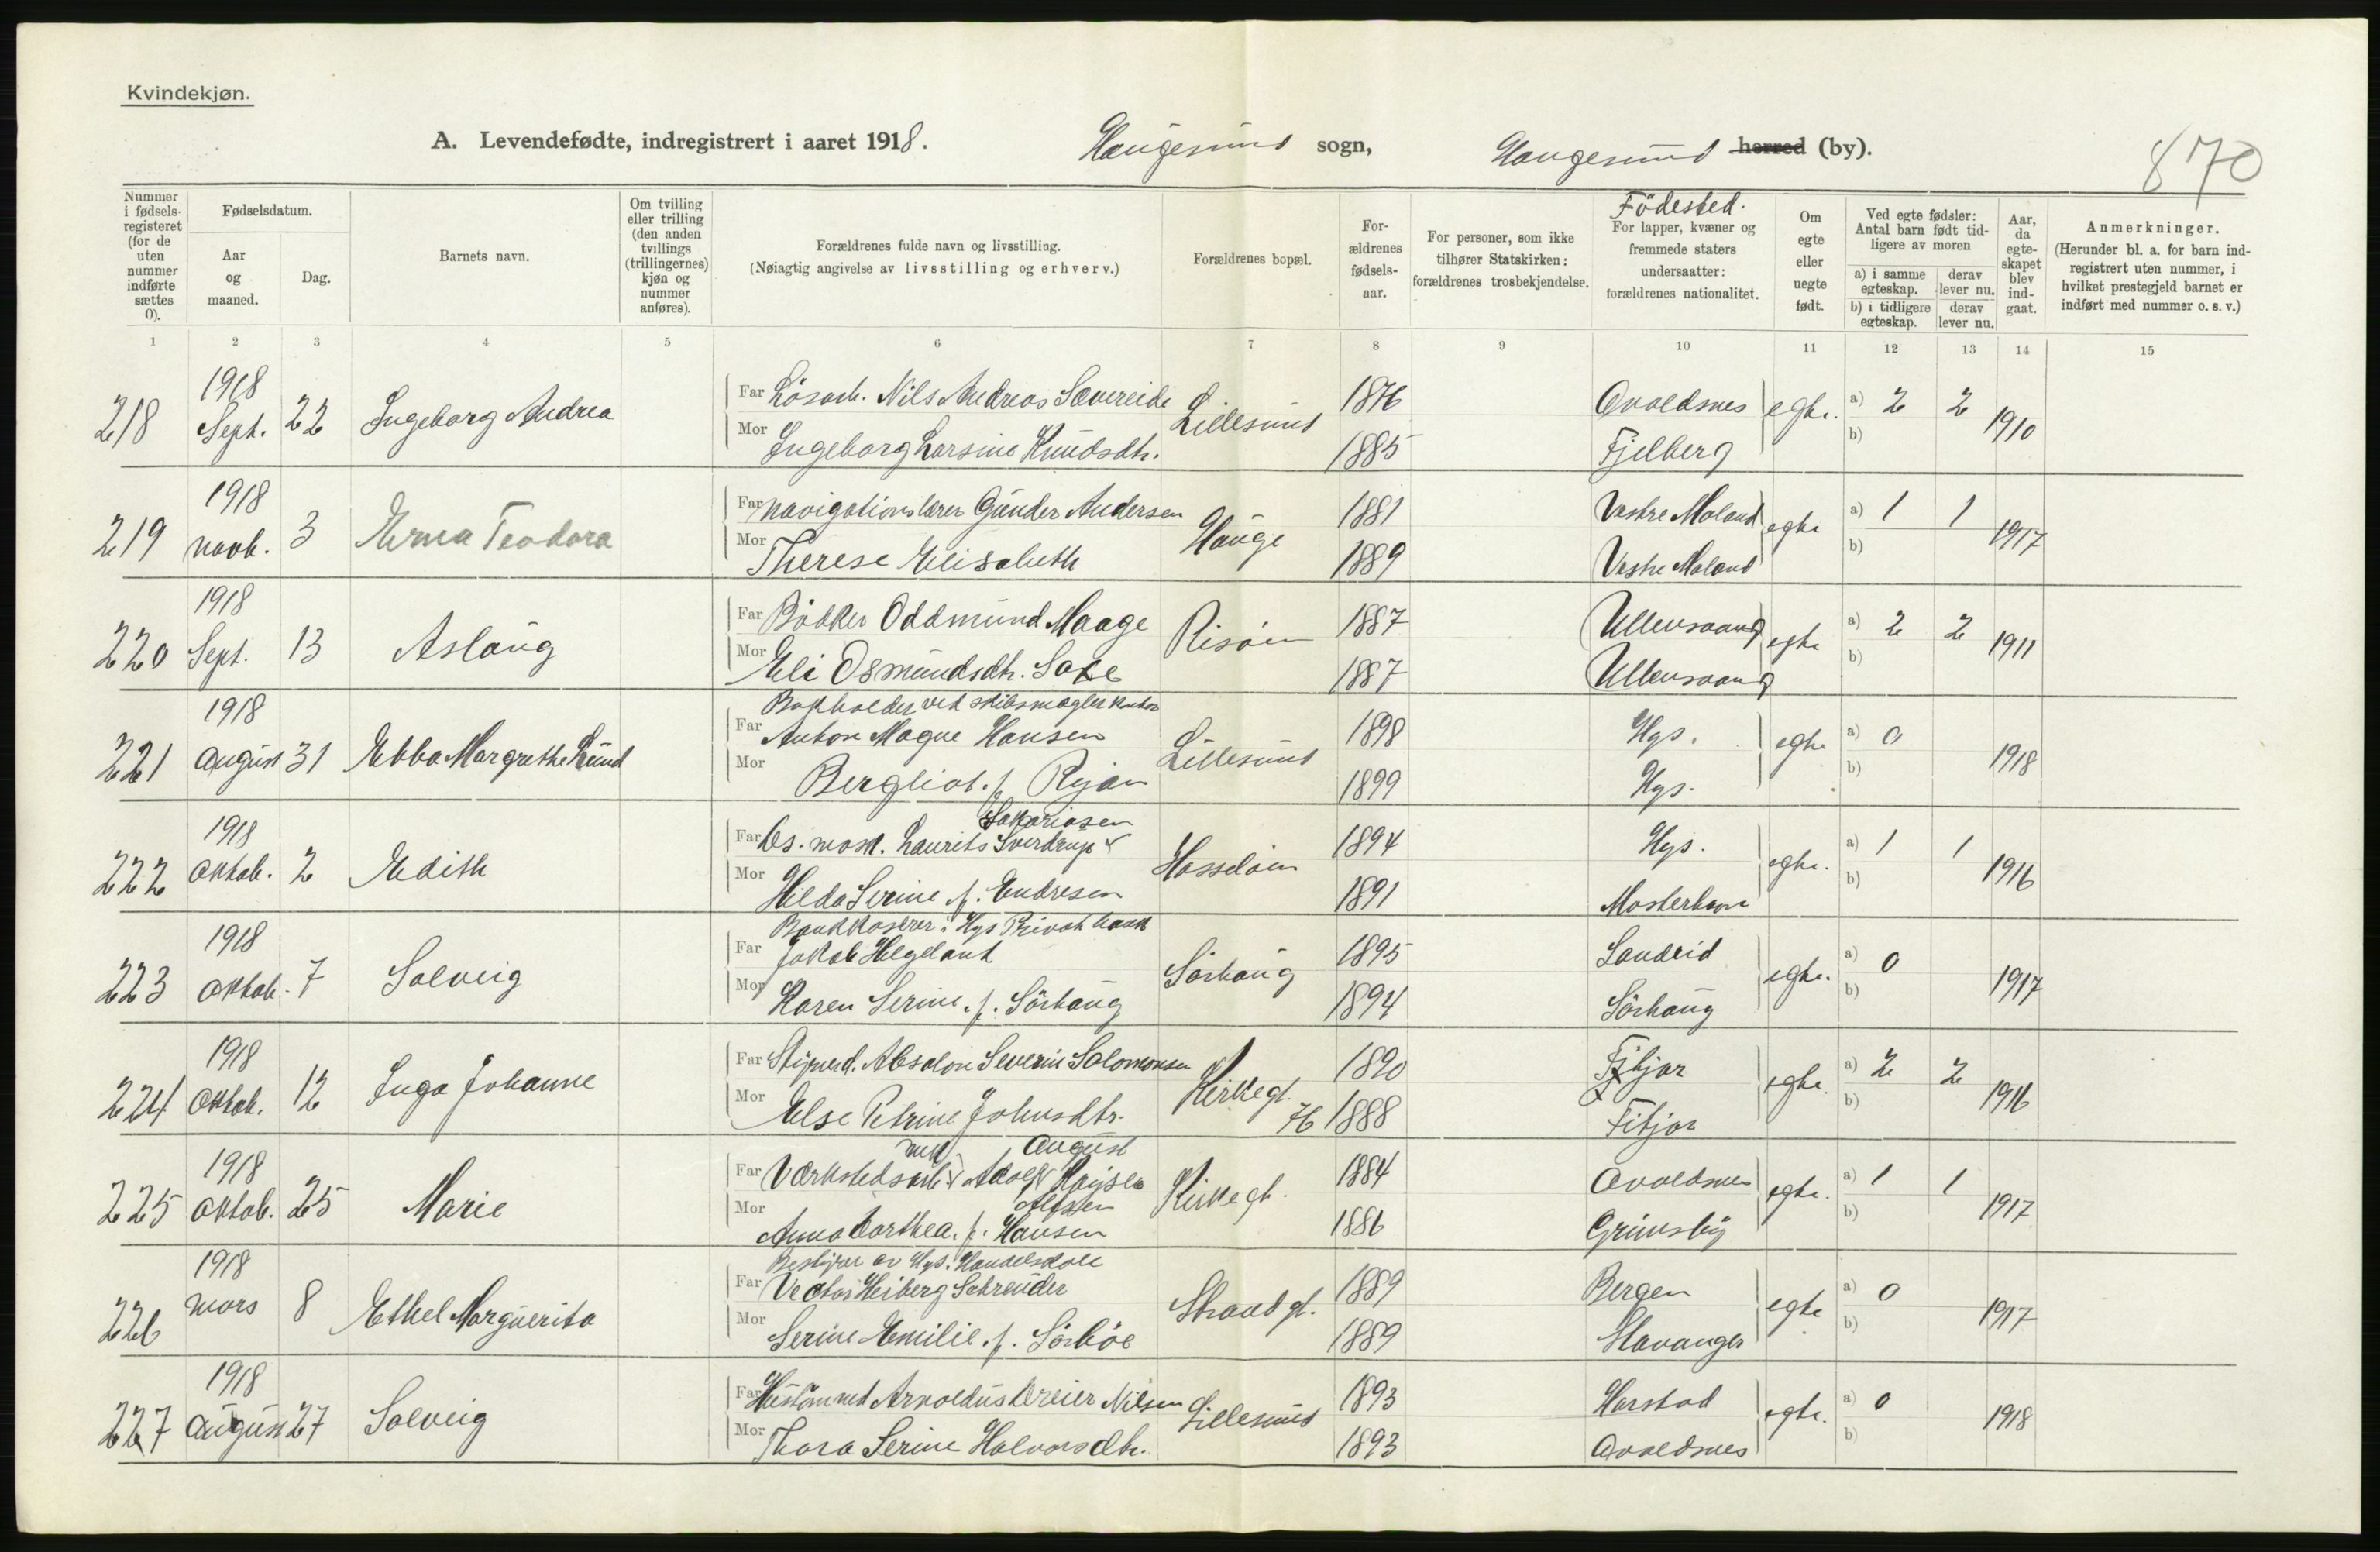 Kvindekjøn.
A. Levendefødte, indregistrert i aaret 1918. Haugesund sogn, Haugesund herred (by). 870
Nummer i fødselsregisteret (for de uten nummer indførte sættes 0).
Fødselsdatum.
Aar og maaned.
Dag.
Barnets navn.
Om tvilling eller trilling (den anden tvillings (trillingernes) kjøn og nummer anføres).
Forældrenes fulde navn og livsstilling.
(Nøiagtig angivelse av livsstilling og erhverv.)
Forældrenes bopæl.
Forældrenes fødselsaar.
For personer, som ikke tilhører Statskirken: forældrenes trosbekjendelse.
Födested.
For lapper, kvæner og fremmede staters undersaatter: forældrenes nationalitet.
Om egte eller uegte født.
Ved egte fødsler: Antal barn født tidligere av moren
a) i samme egteskap. derav lever nu.
b) i tidligere egteskap. derav lever nu.
Aar, da egteskapet blev indgaat.
Anmerkninger.
(Herunder bl. a. for barn indregistrert uten nummer, i hvilket prestegjeld barnet er indført med nummer o. s. v.)
1 2 3 4 5 6 7 8 9 10 11 12 13 14 15
218 1918 Sept. 22 Ingeborg Andrea
Far Lösarb. Nils Andreas Sævereide Lillesund 1876 Avaldsnes egte. a) 2 2 1910
Mor Ingeborg Larsine Knudsdtr. 1885 Fjelberg b)
219 1918 novb. 3 Erna Teodora
Far navigationslærer Gunder Andersen Hauge 1881 Vestre Moland egte a) 1 1 1917
Mor Therese Elisabeth 1889 Vestre Moland b)
220 1918 Sept. 13 Aslaug
Far Bödker Oddmund Maage Risöen 1887 Ullensvang egte a) 2 2 1911
Mor Eli Osmundsdtr. Saxe 1887 Ullensvang b)
221 1918 August 31 Ebba Margrethe Lund
Bokholder ved skibsmæglerkontor
Far Anton Magne Hansen Lillesund 1898 Hgs. egte a) 0 1918
Mor Bergliot. f. Rejan 1899 Hgs. b)
222 1918 Oktob. 2 Edith
Sakariasen
Far Ds. mask. Laurits Sverdrup Hasseløen 1894 Hgs. egte. a) 1 1 1916
Mor Hilda Serine f. Endresen 1891 Mosterhavn b)
223 1918 Oktob. 7 Solveig
Bankkasserer i Hgs Privatbank
Far Jakob Helgeland Sörhaug 1895 Sandeid egte. a) 0 1917
Mor Karen Serine. f. Sörhaug 1894 Sörhaug b)
224 1918 Oktob. 12 Inga Johanne
Far Styrmd. Absalon Severin Salomonsen Kirkegt. 76 1890 Fitjar egte. a) 2 2 1916
Mor Else Petrine Johnsdtr. 1888 Fitjar b)
225 1918 Oktob. 25 Marie
mek August
Far Værkstedsarb. Adolf Kaijser Kirkegt. 1884 Avaldsnes egte. a) 1 1 1917
Mor Anna Dorthea. f. Hansen 1886 Grimsby b)
226 1918 mars 8 Ethel Marguerita
Bestyrer av Hgs. Handelskole
Far Vector Heiberg Schreuder Strandgt. 1889 Bergen egte a) 0 1917
Mor Serine Emilie. f. Sörböe 1889 Stavanger b)
227 1918 August 27 Solveig
Far Hustömmed Arnoldus Dreier Nilsen Lillesund 1893 Harstad egte. a) 0 1918
Mor Thora Serine Halvorsdtr. 1893 Avaldsnes b)